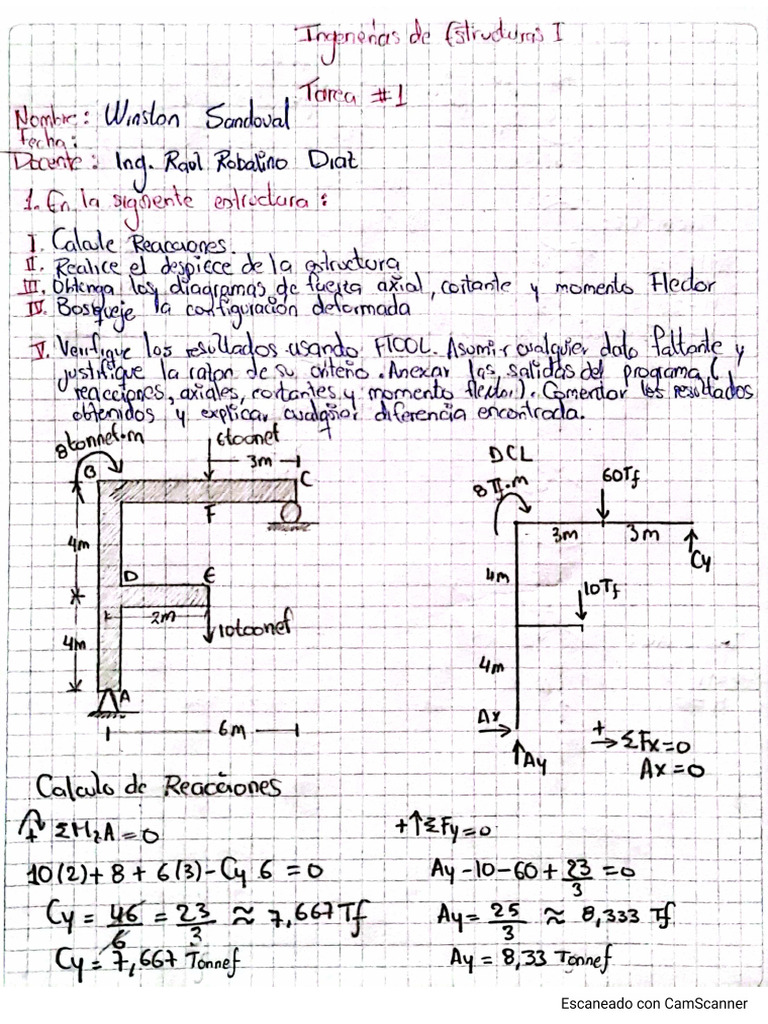 Ingenerias de Estructuras I
Tarea #1
Nombre: Winston Sandoval
Fecha:
Docente: Ing. Raul Robalino Diaz
1. En la siguiente estructura:
I. Calcule Reacciones.
II. Realice el despiece de la estructura
III. Obtenga los diagramas de fuerza axial, cortante y momento Flector
IV. Bosqueje la configuración deformada
V. Verifique los resultados usando FTOOL. Asumir cualquier dato faltante y
justifique la razon de su criterio. Anexar las salidas del programa (
reacciones, axiales, cortantes y momento flector). Comentar los resultados
obtenidos y explicar cualquier diferencia encontrada.
8tonnef.m
6tonnef
3m
B
C
F
4m
D
E
2m
10tonnef
4m
A
6m
DCL
8Tf.m
60Tf
3m
3m
Cy
4m
10Tf
4m
Ax
Ay
+→ ΣFx=0
Ax=0
Calculo de Reacciones
+ ΣMzA=0
10(2)+8+6(3)-Cy 6=0
Cy = 46/6 = 23/3 ≈ 7,667 Tf
Cy = 7,667 Tonnef
+↑ΣFy=0
Ay-10-60+23/3=0
Ay = 25/3 ≈ 8,333 Tf
Ay = 8,33 Tonnef
Escaneado con CamScanner